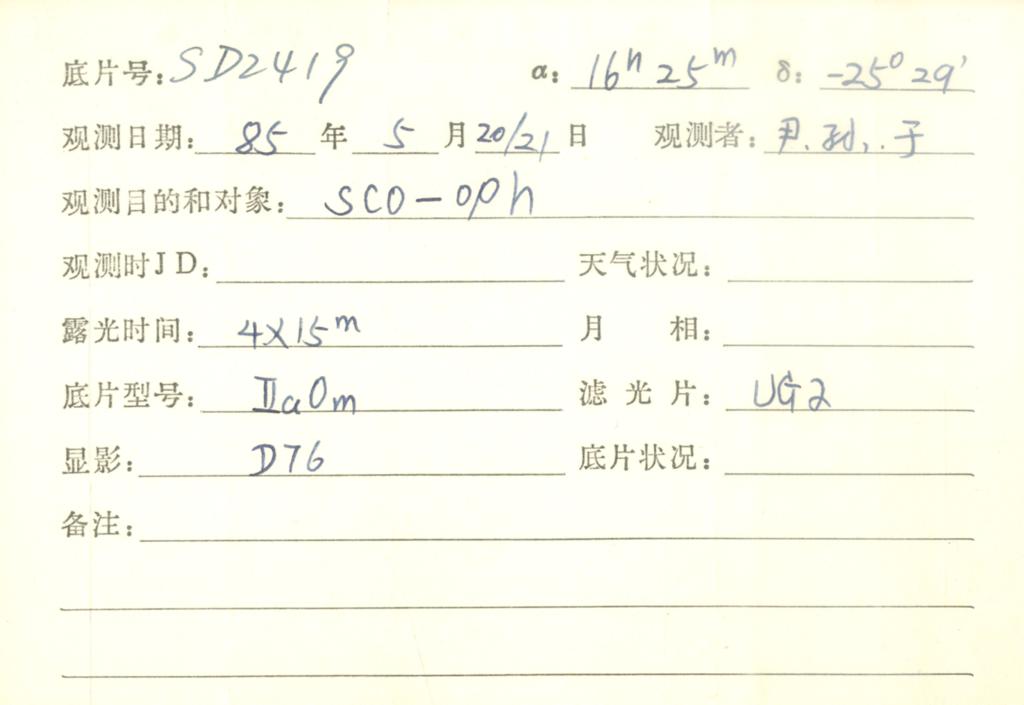 底片号: SD2419 α: 16ʰ 25ᵐ δ: -25° 29′
观测日期: 85 年 5 月 20/21 日 观测者: 尹、孙、于
观测目的和对象: SCO-OPh
观测时JD: 天气状况:
露光时间: 4×15ᵐ 月 相:
底片型号: ⅡaOm 滤 光 片: UG2
显影: D76 底片状况:
备注: